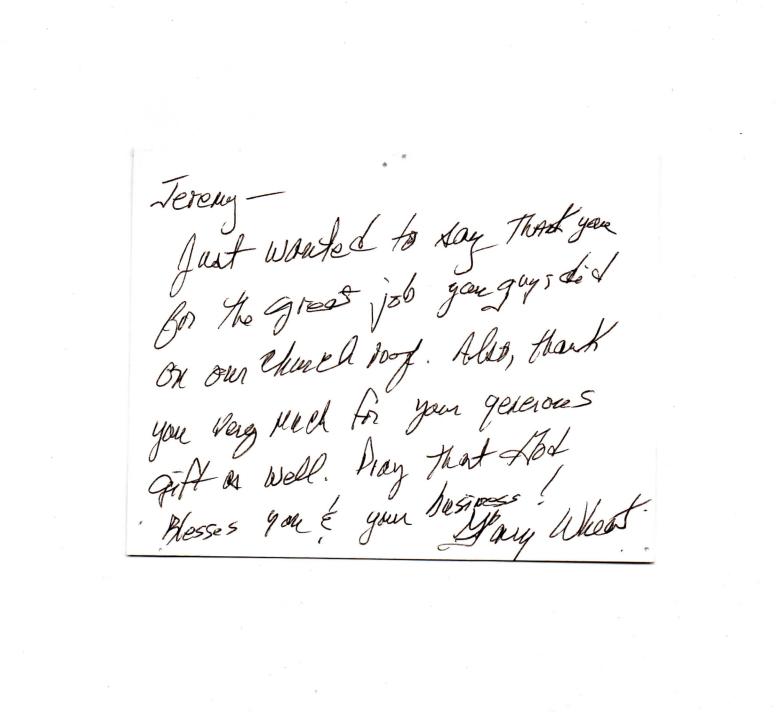 Jeremy —
Just wanted to say thank you
for the great job you guys did
on our church roof. Also, thank
you very much for your generous
gift as well. Pray that God
Blesses you & your business!
Gary Wheat